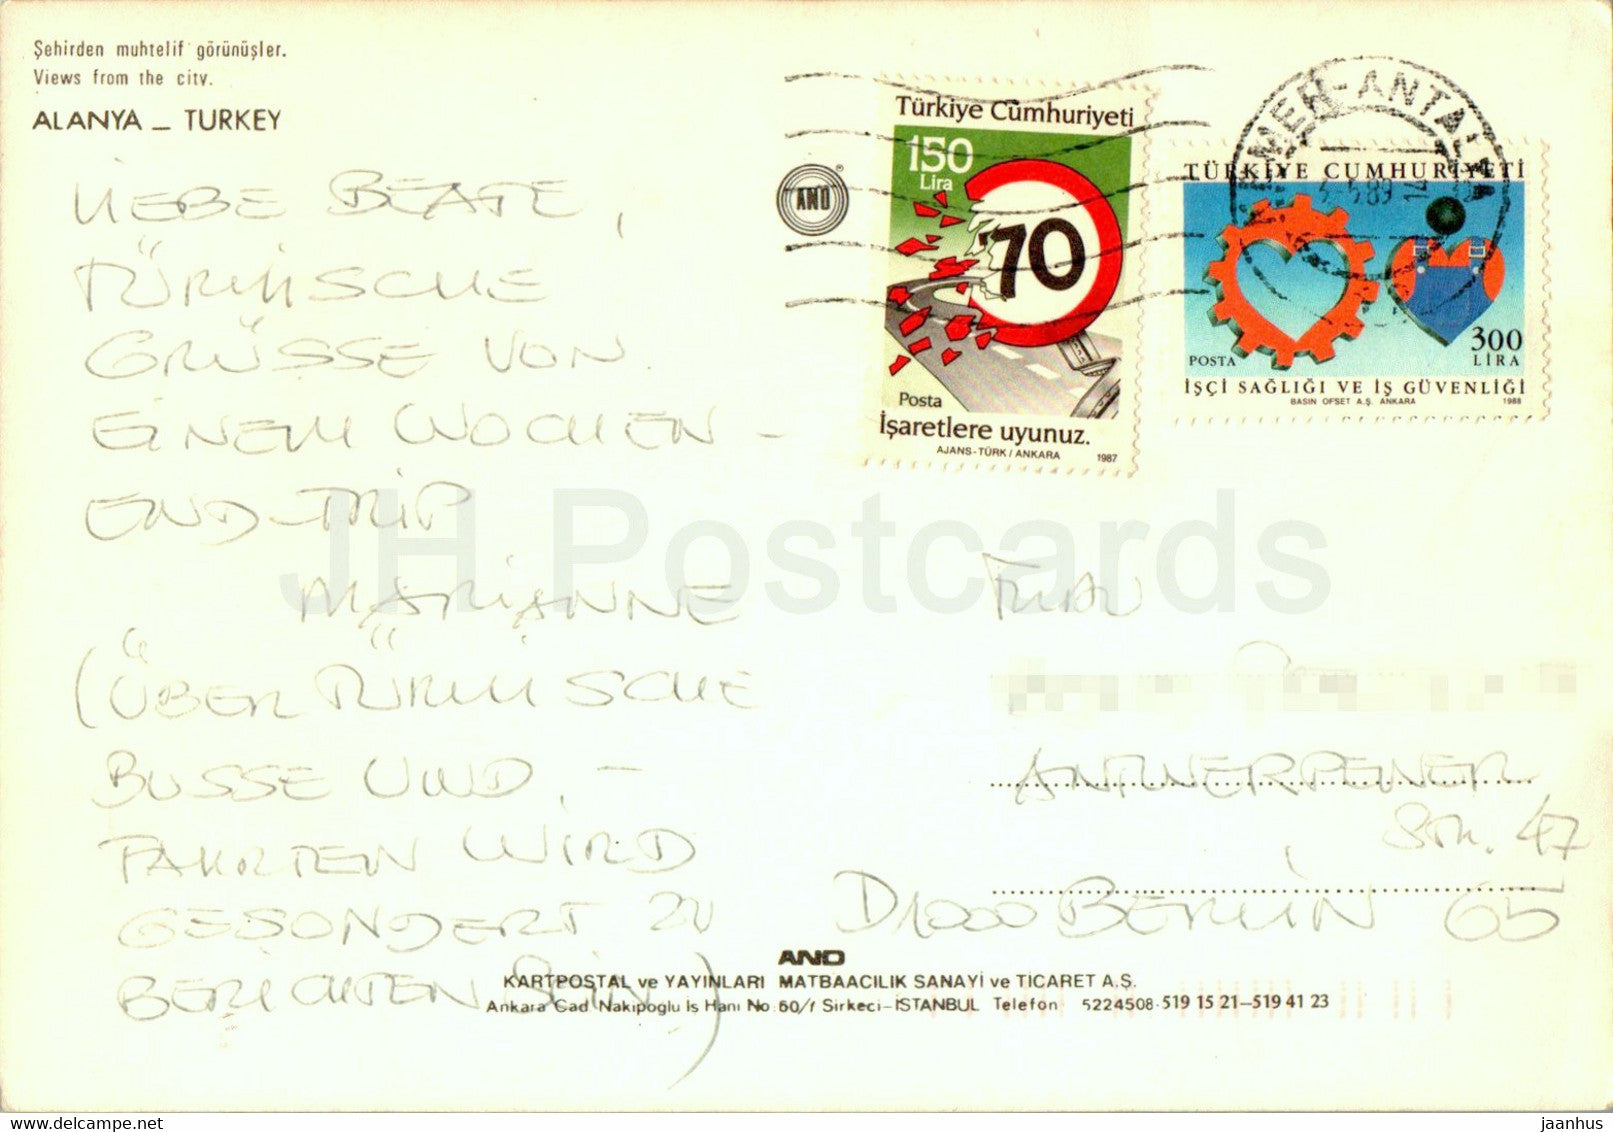 Şehirden muhtelif görünüşler.
Views from the city.
ALANYA _ TURKEY
LIEBE BEATE,
TÜRKISCHE
GRÜSSE VON
EINEM WOCHEN-
END-TRIP
MARIANNE
(ÜBER TÜRKISCHE
BUSSE UND -
FAHRTEN WIRD
GESONDERT ZU
BERICHTEN SEIN)
AND
Türkiye Cumhuriyeti
150
Lira
70
Posta
İşaretlere uyunuz.
AJANS-TÜRK / ANKARA 1987
KEMER-ANTALYA
5.89
TÜRKİYE CUMHURİYETİ
300
POSTA LİRA
İŞÇİ SAĞLIĞI VE İŞ GÜVENLİĞİ
BASIN OFSET A.Ş. ANKARA 1988
FRAU
ANTWERPENER
STR. 47
D1000 BERLIN 65
AND
KARTPOSTAL ve YAYINLARI MATBAACILIK SANAYİ ve TİCARET A.Ş.
Ankara Cad. Nakipoglu İs Hanı No 60/f Sirkeci-İSTANBUL Telefon 5224508-519 15 21-519 41 23
JH Postcards
delcampe.net
jaanhus